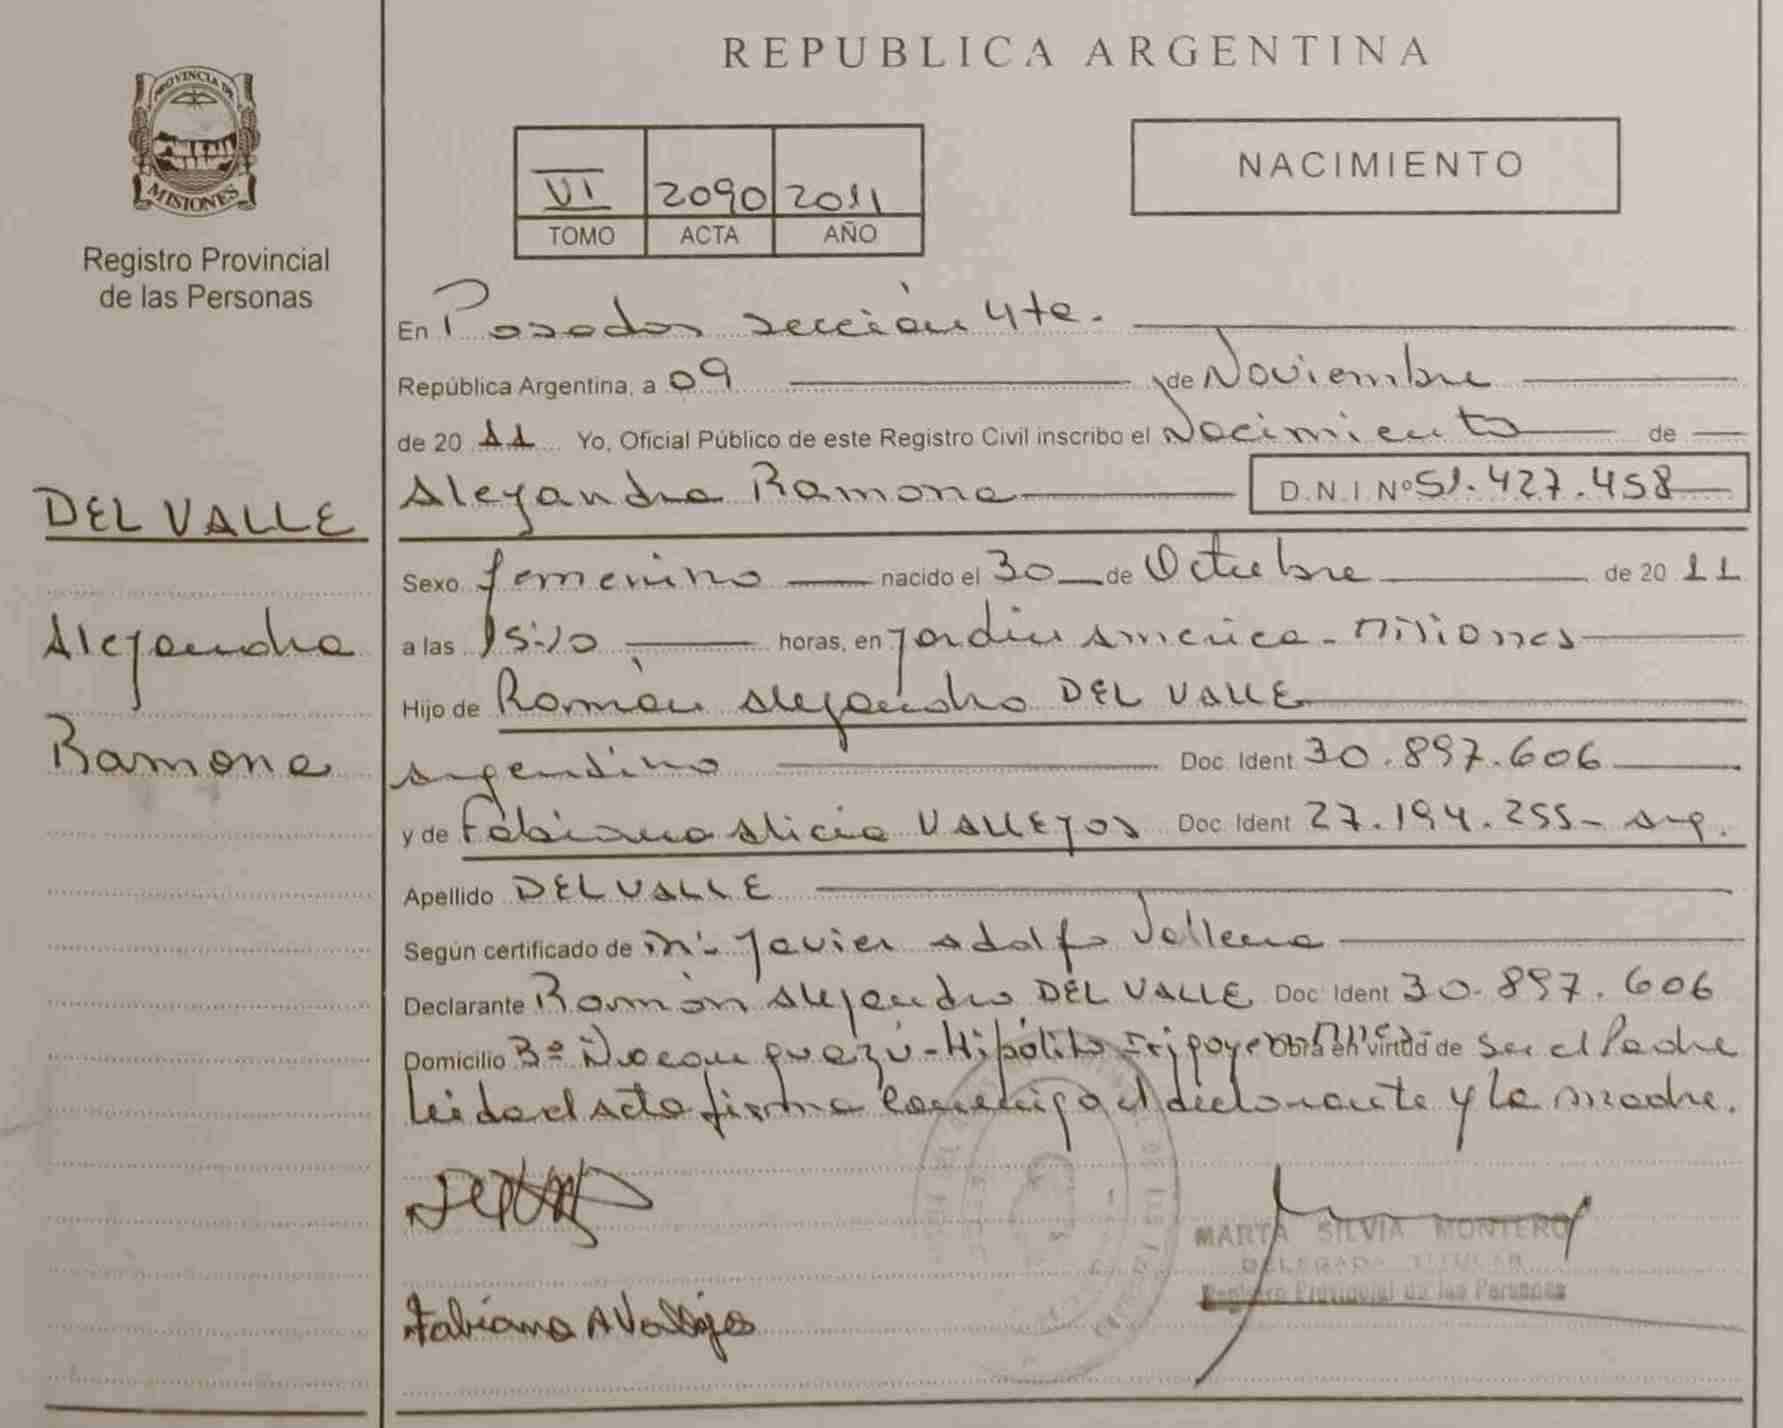 REPUBLICA ARGENTINA
PROVINCIA DE
MISIONES
Registro Provincial
de las Personas
VI 2090 2011
TOMO ACTA AÑO
NACIMIENTO
En Posadas sección 4ta.
República Argentina, a 09 de Noviembre
de 20 11 Yo, Oficial Público de este Registro Civil inscribo el Nacimiento de
Alejandra Ramona D.N.I Nº 51.427.458
DEL VALLE
Alejandra
Ramona
Sexo femenino nacido el 30 de Octubre de 20 11
a las 15:10 horas, en Jardín América - Misiones
Hijo de Ramón Alejandro DEL VALLE
argentino Doc. Ident 30.897.606
y de Fabiana Alicia VALLEJOS Doc. Ident 27.194.255- arg.
Apellido DEL VALLE
Según certificado de Javier Adolfo
Declarante Ramón Alejandro DEL VALLE Doc Ident 30.897.606
Domicilio Bº Ñacanguazú - Hipólito Irigoyen Mnes Obra en virtud de ser el Padre
Leída el acta firma conmigo el declarante y la madre.
Fabiana A Vallejos
MARTA SILVIA MONTERO
DELEGADA TITULAR
Registro Provincial de las Personas